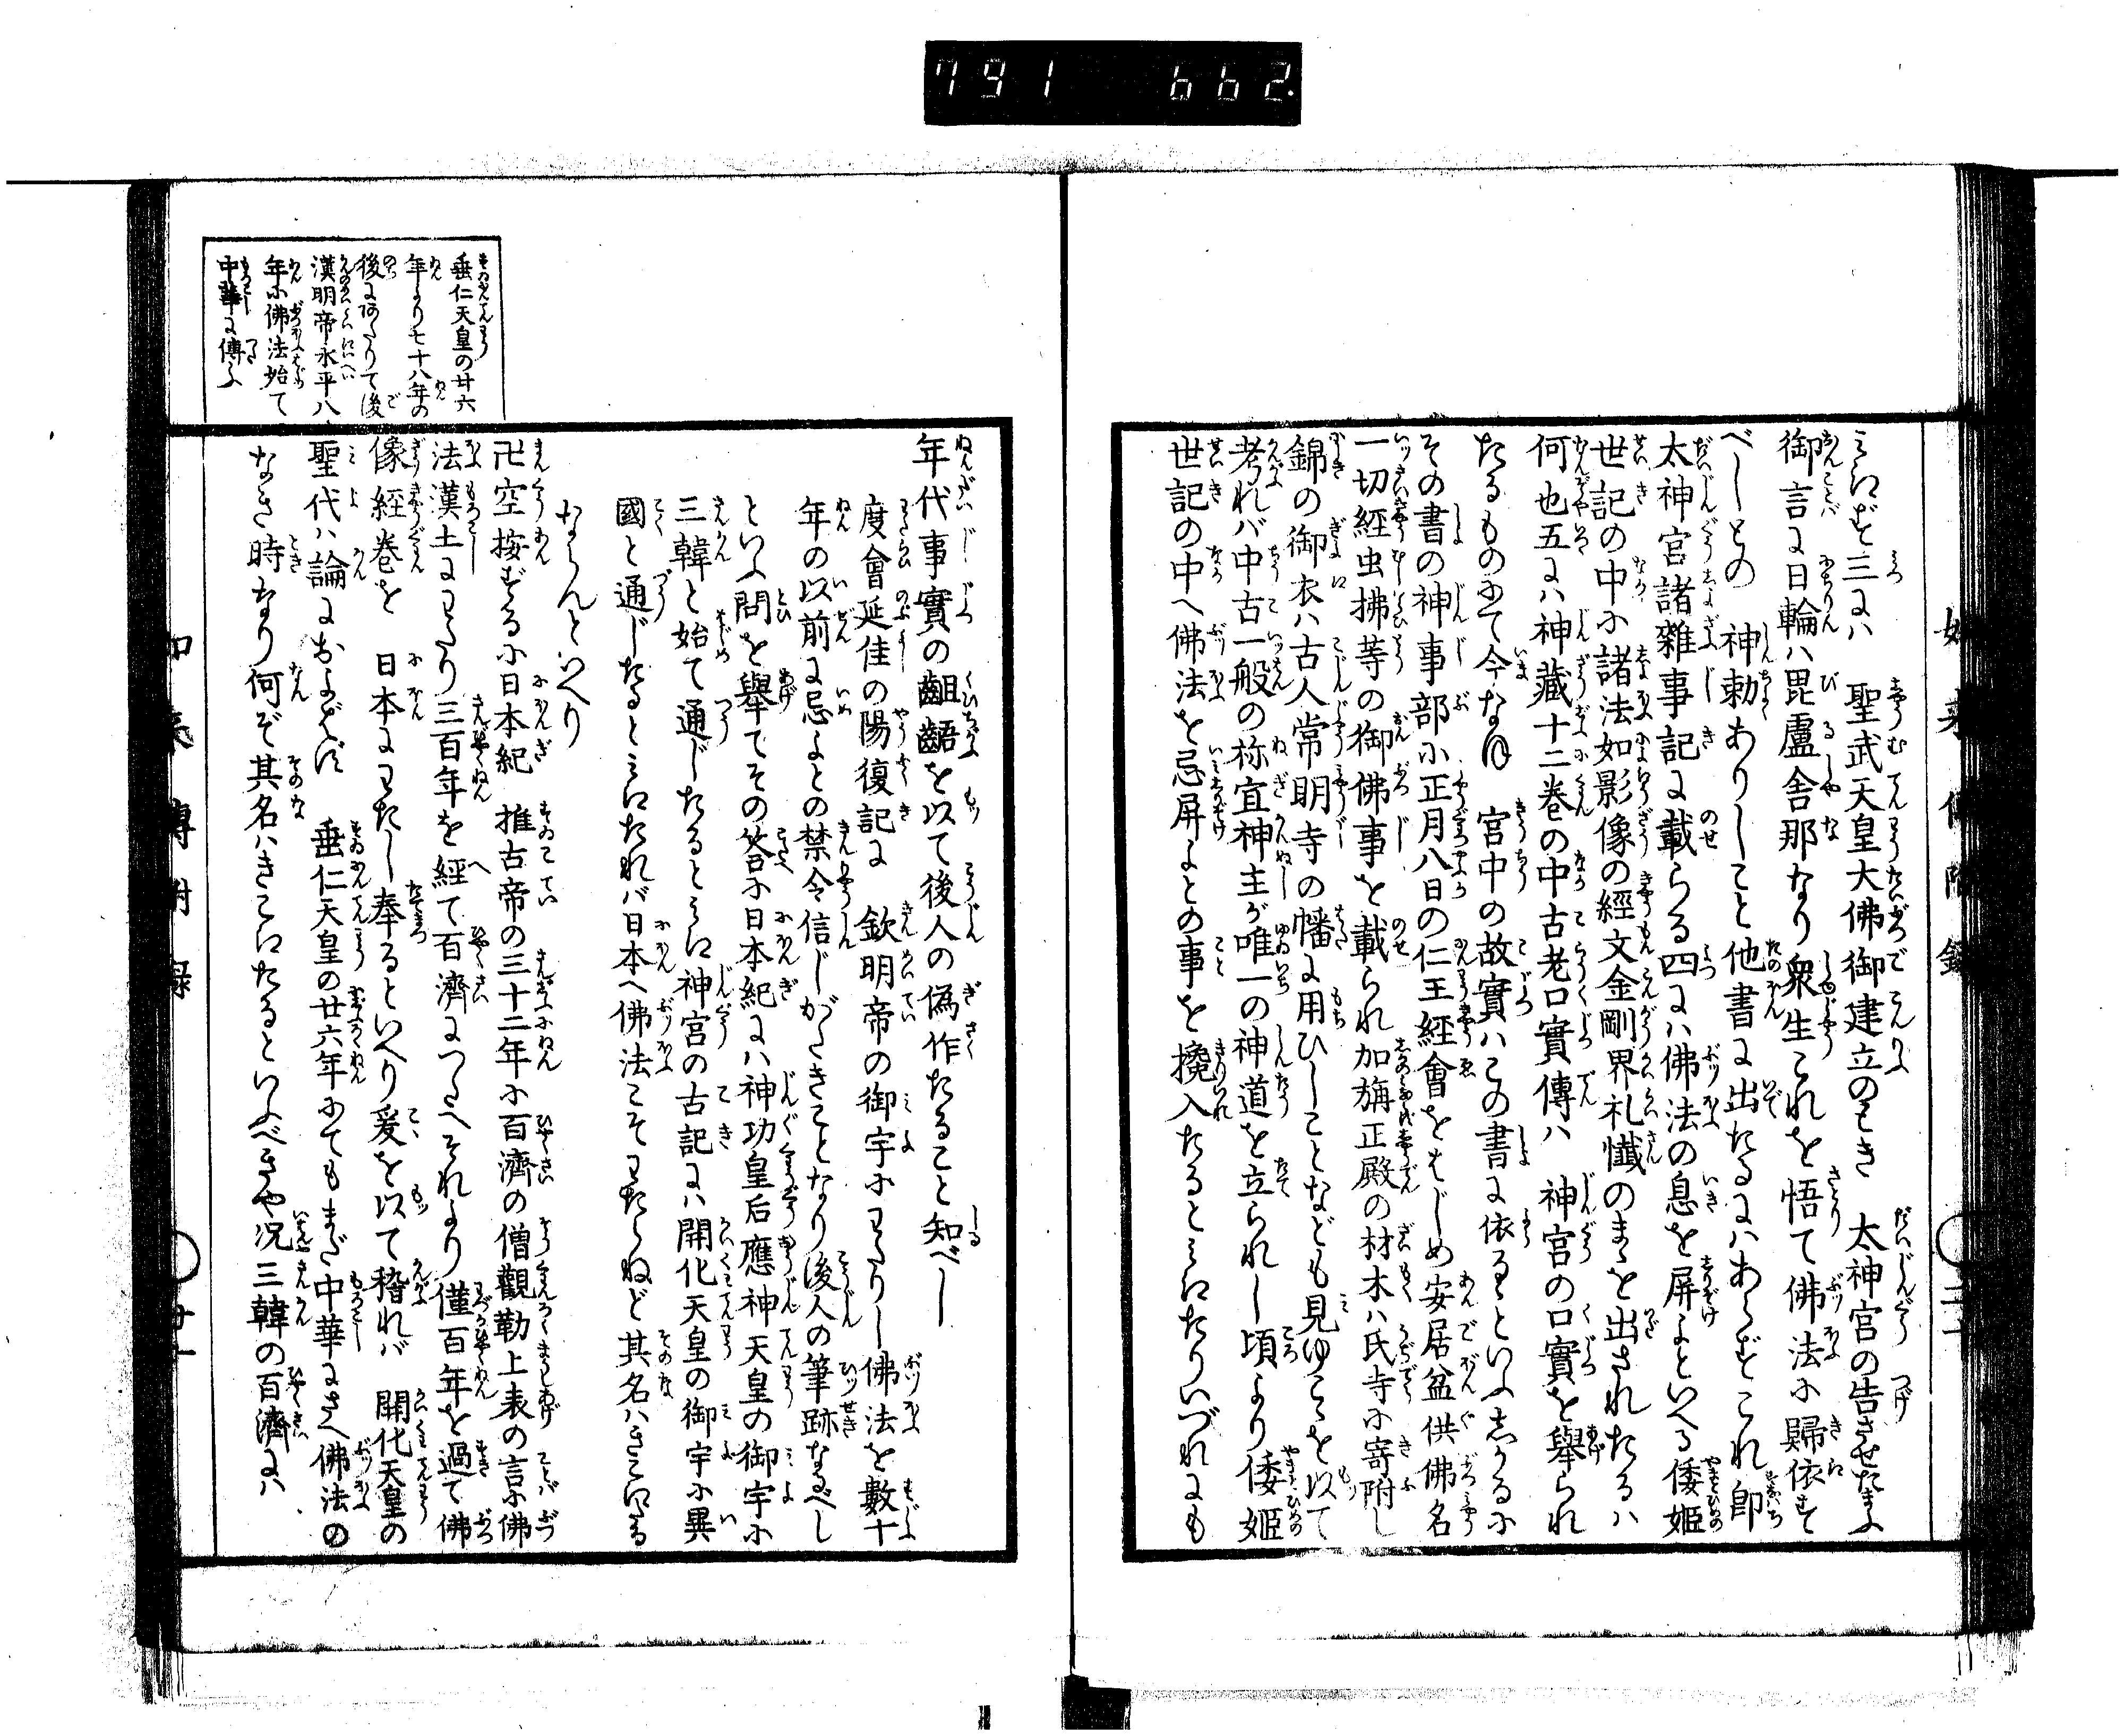 791 662.
みえず三には　聖武天皇大佛御建立のとき　太神宮の告させたまふ
御言に日輪ハ毘盧舎那なり衆生これを悟て佛法に歸依す
べしとの　神勅ありしこと他書に出たるにハあらずこれ即
太神宮諸雜事記に載らる四にハ佛法の息を屏よといへる倭姫
世記の中に諸法如影像の經文金剛界礼懺のまゝを出されたるハ
何也五にハ神藏十二巻の中古老口實傳ハ　神宮の口實を擧られ
たるものにて今なほ　宮中の故實ハこの書に依るといふしかるに
その書の神事部に正月八日の仁王經會をはじめ安居盆供佛名
一切経虫拂等の御佛事を載られ加旃正殿の材木ハ氏寺に寄附し
錦の御衣ハ古人常明寺の幡に用ひしことなども見ゆこを以て
考れバ中古一般の祢宜神主が唯一の神道を立られし頃より倭姫
世記の中へ佛法を忌屏よとの事を攙入たるとみえたりいづれにも
年代事實の齟齬を以て後人の偽作たること知べし
度會延佳の陽復記に　欽明帝の御宇にわたりし佛法を數十
年の以前に忌よとの禁令信じがたきことなり後人の筆跡なるべし
といふ問を擧てその答に日本紀にハ神功皇后應神天皇の御宇に
三韓と始て通じたるとみえ神宮の古記にハ開化天皇の御宇に異
國と通じたるとみえたれバ日本へ佛法こそわたらねど其名ハきこえたる
ならんといへり
卍空按ずるに日本紀　推古帝の三十二年に百濟の僧觀勒上表の言に佛
法漢土にわたり三百年を経て百濟につたへそれより僅百年を過て佛
像経巻を　日本にわたし奉るといへり爰を以て稽れバ　開化天皇の
聖代ハ論におよばず　垂仁天皇の廿六年にてもまだ中華にさへ佛法の
なき時なり何ぞ其名ハきこえたるといふべきや况三韓の百濟にハ
垂仁天皇の廿六
年より七十八年の
後にあたりて後
漢明帝永平八
年に佛法始て
中華に傳ふ